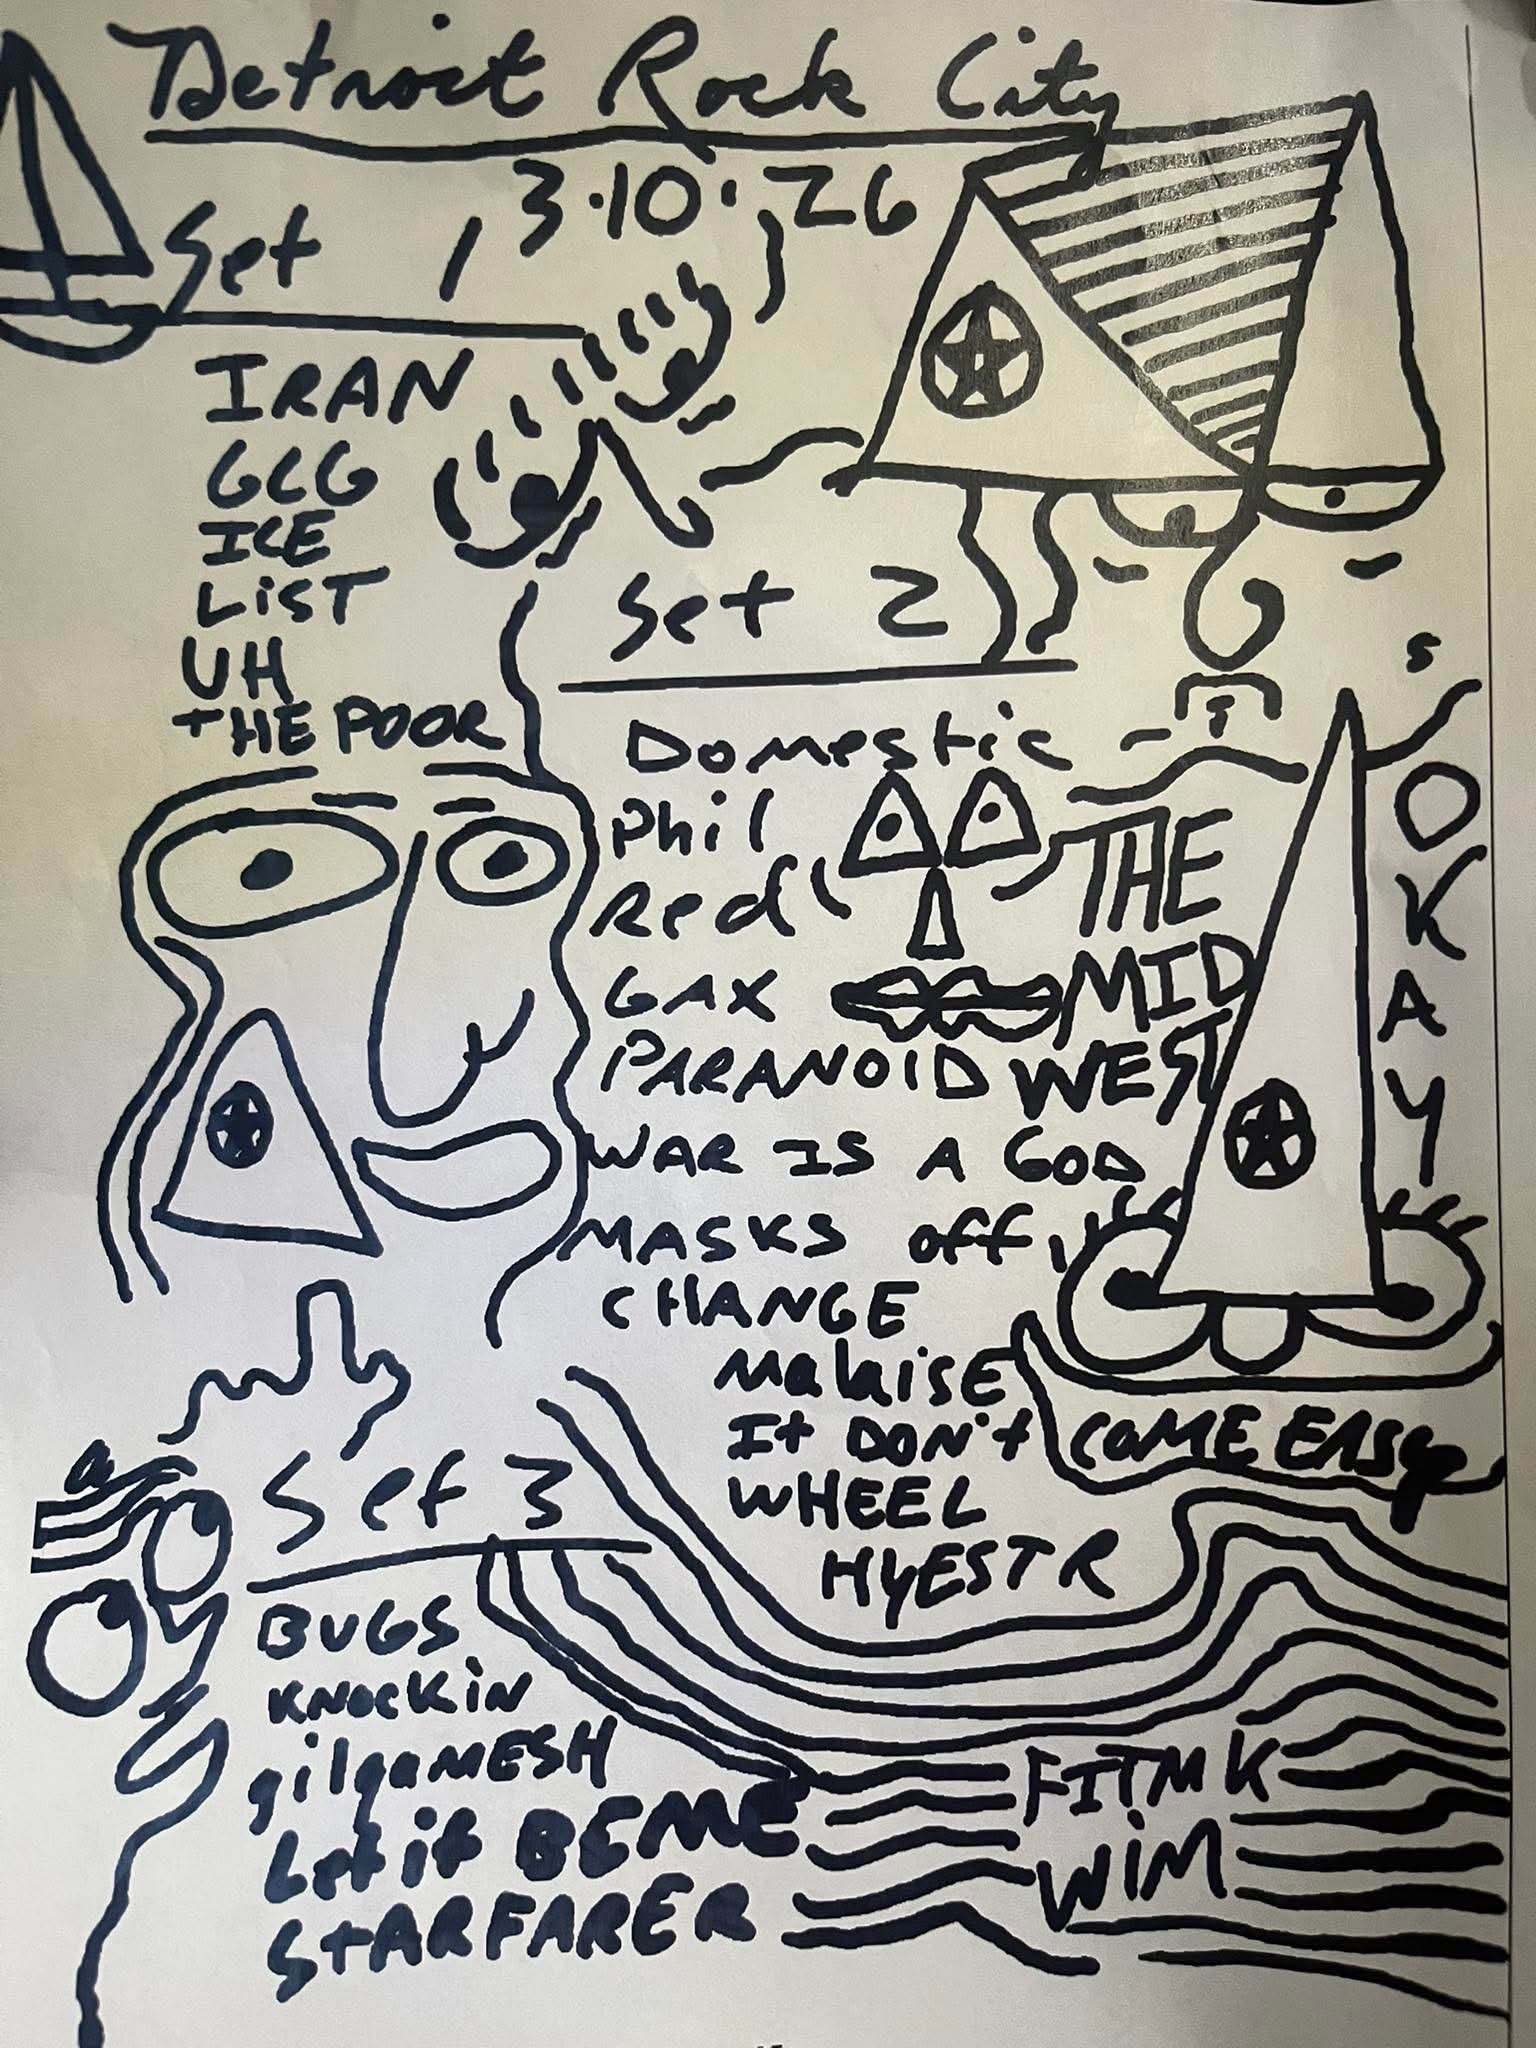 Detroit Rock City
3·10·26
Set 1
IRAN
GCG
ICE
LiST
UH
THE POOR
Set 2
Domestic
Phil
Red
GAX
PARANOID
WAR IS A GOD
MASKS off
CHANGE
MalaisE
It DON't COME EASY
WHEEL
HYESTR
THE
MID
WEST
S
OKAY
Set 3
BUGS
KNOCKiN
gilgaMESH
Let it BEME
STARFARER
FITMK
WiM